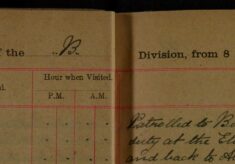 f the B Division, from 8
Hour when Visited.
P.M. A.M.
Patrolled to
duty at the
and back to